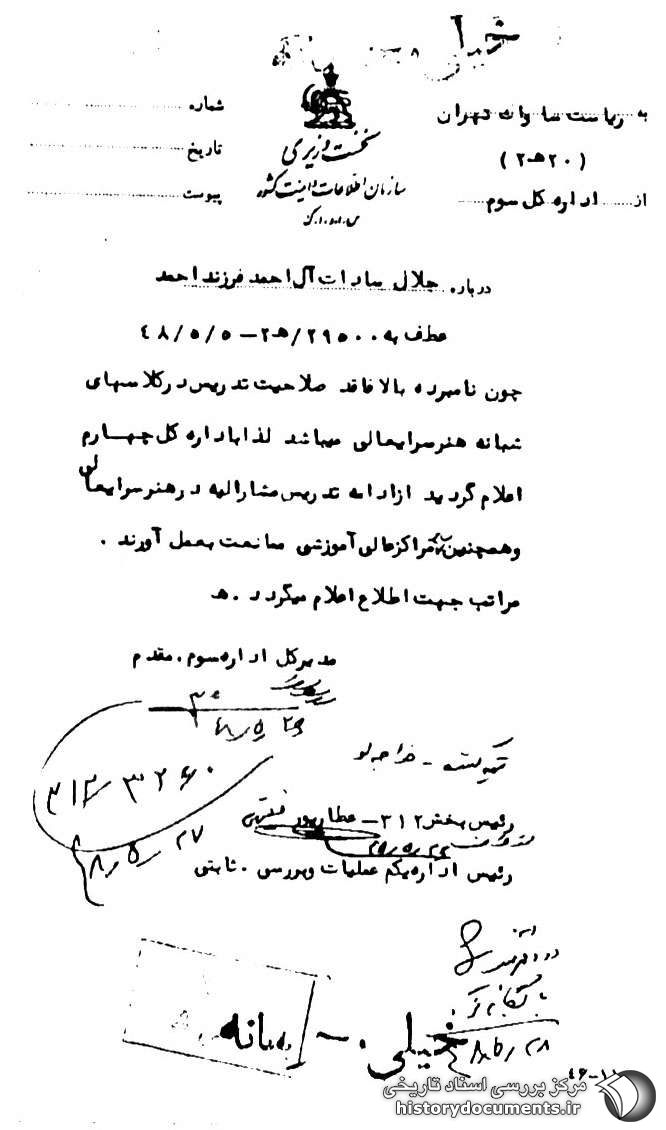 خیلی
به ریاست ساواک تهران
(۲۰هـ۲)
از اداره کل سوم
نخست وزیری
سازمان اطلاعات و امنیت کشور
س.ا.و.ا.ک
شماره
تاریخ
پیوست
درباره جلال سادات آل احمد فرزند احمد
عطف به ۲۹۵۰۰/هـ۲ – ۴۸/۵/۵
چون نامبرده بالا فاقد صلاحیت تدریس در کلاسهای
شبانه هنرسرایعالی میباشد لذا باداره کل چهارم
اعلام گردید از ادامه تدریس مشارالیه در هنرسرایعالی
و همچنین سایر مراکز عالی آموزشی ممانعت بعمل آورند .
مراتب جهت اطلاع اعلام میگردد .هـ
مدیرکل اداره سوم . مقدم
۴۸/۵/۲۶
۳۱۲/۳۲۶۰
۴۸/۵/۲۷
تهیه کننده - خواجه لو
رئیس بخش ۳۱۲ – عطارپور
رئیس اداره یکم عملیات و بررسی . ثابتی
۴۸/۵/۲۸
خیلی محرمانه
۴۶-۱۱
مرکز بررسی اسناد تاریخی
historydocuments.ir